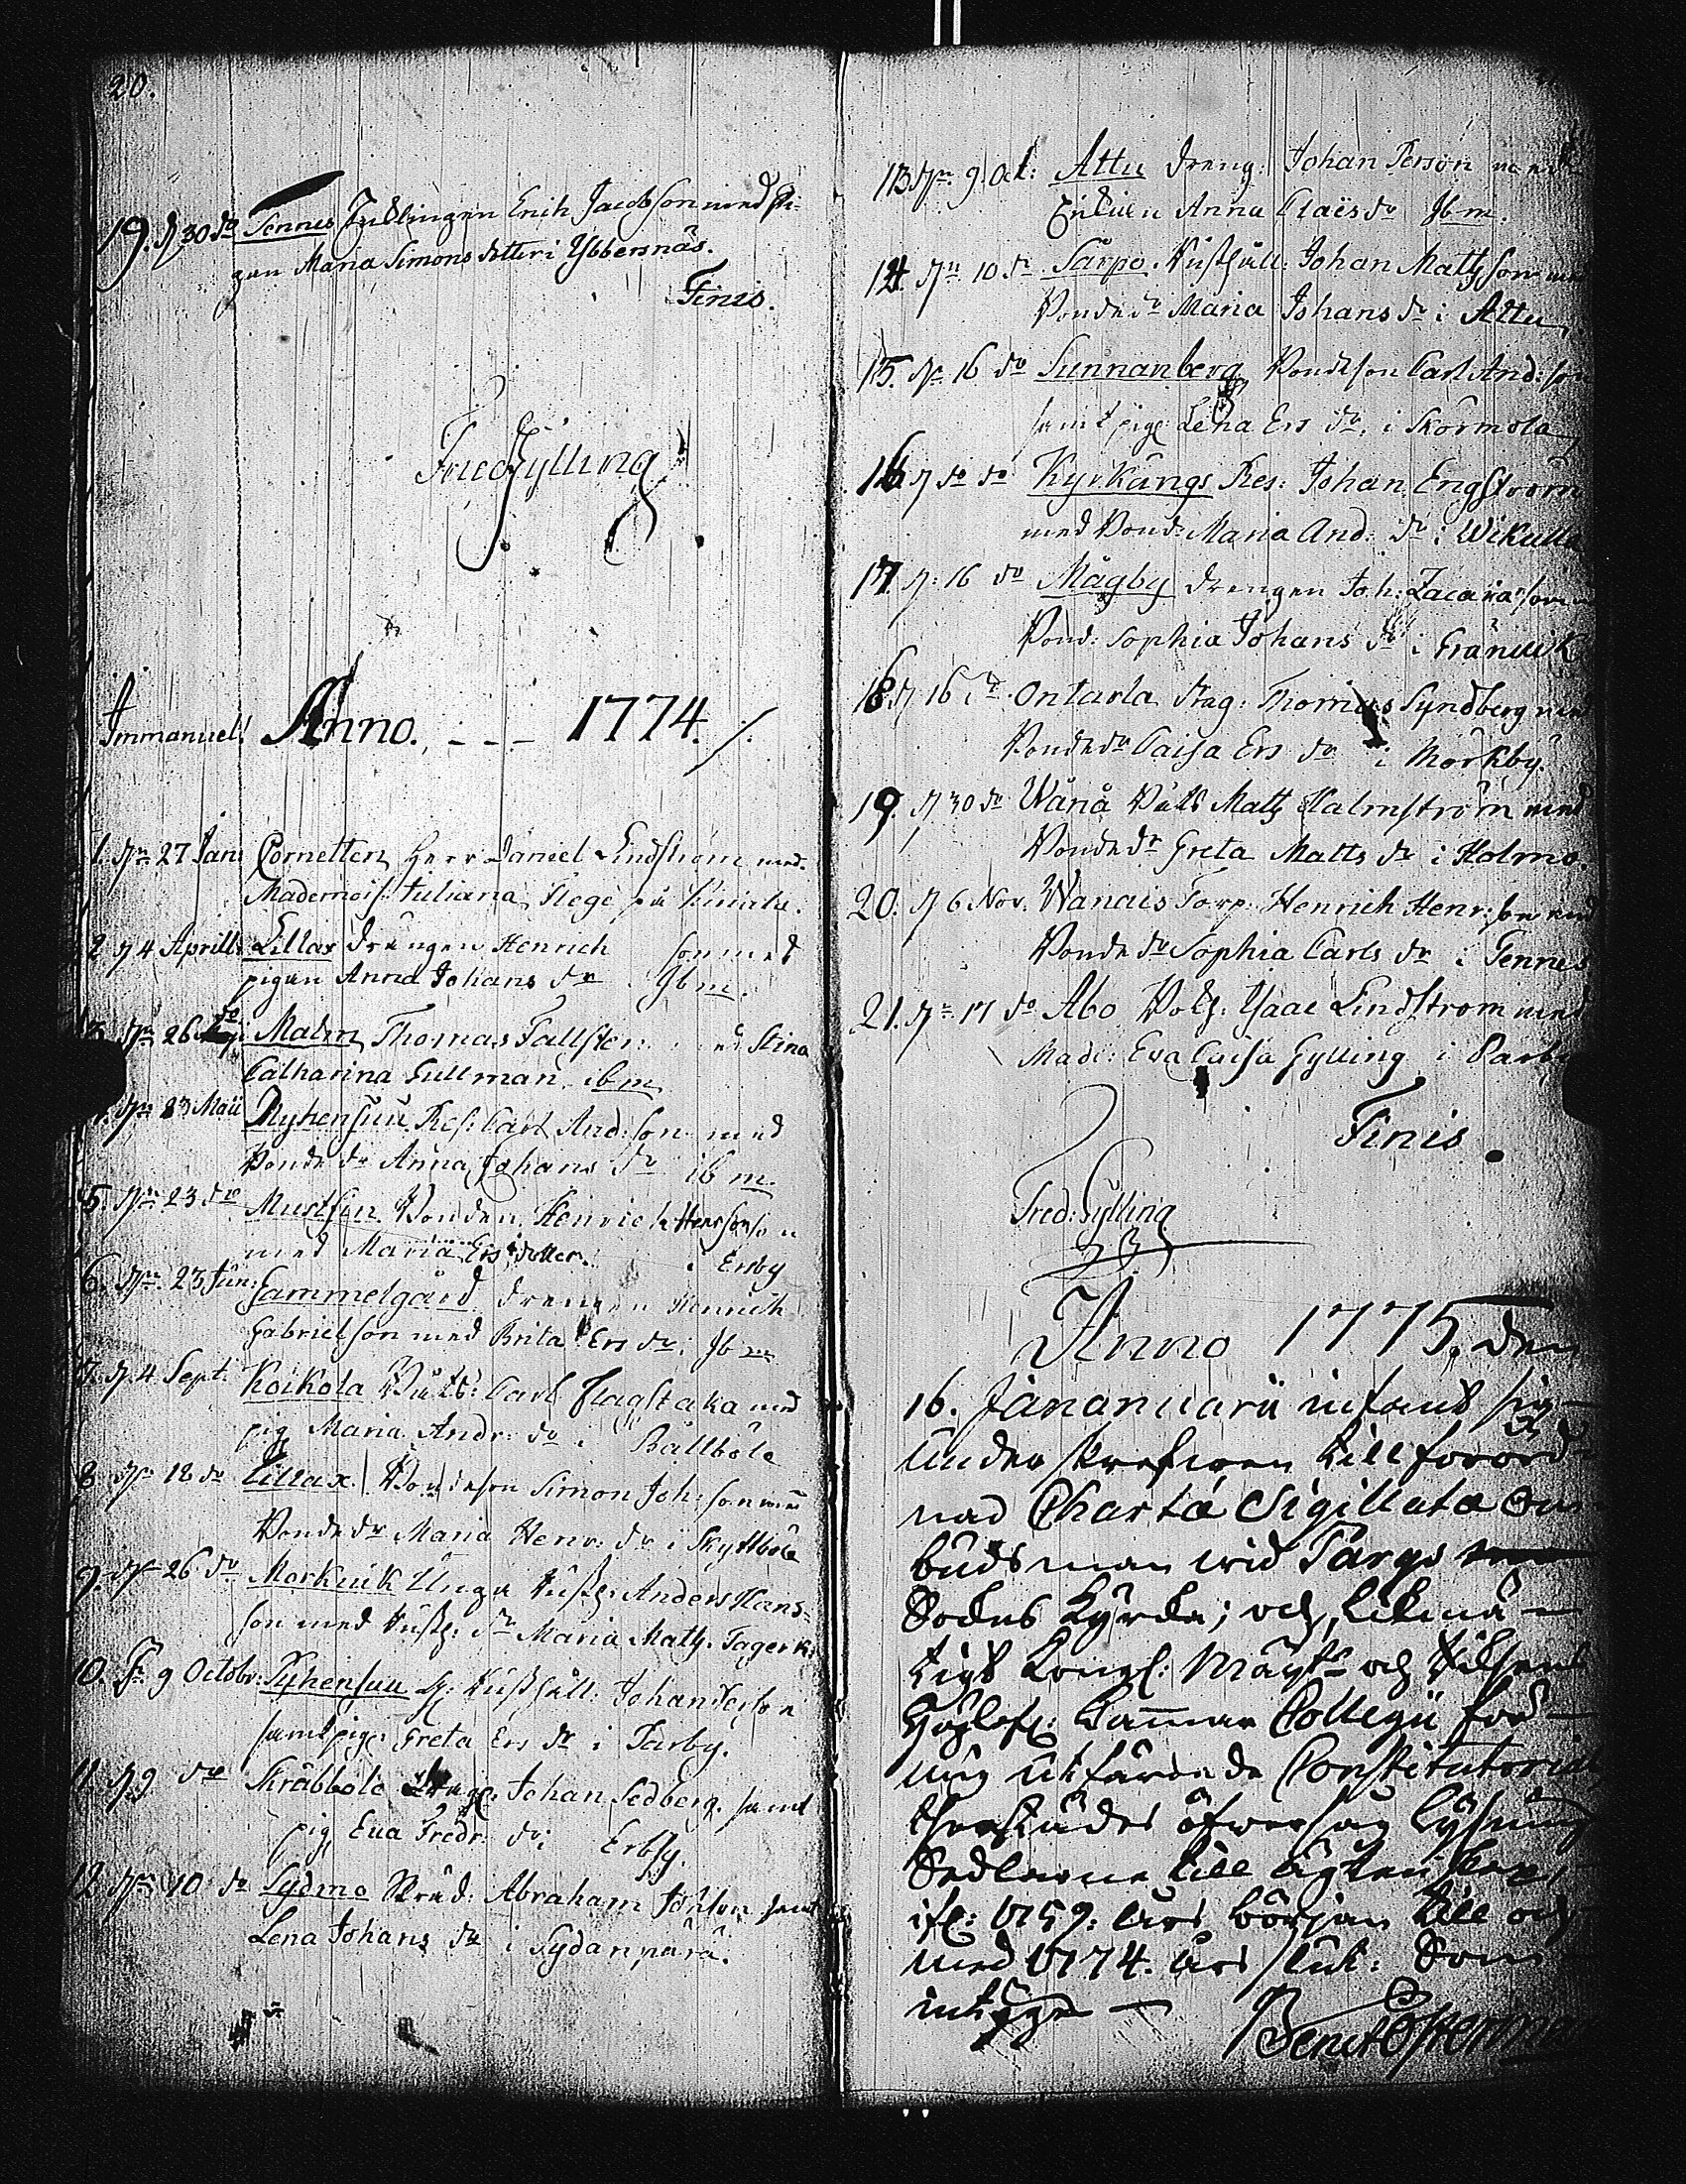 20.
19. d 30 do Tennes Inhlingen Erich Jacobson med Pi-
gan Maria Simons dotter i Ybbersnäs.
Finis.
Fred Gylling
Immanuel! Anno. - - - 1774. /.
1. dn 27 Jan: Cornetten Herr Daniel Lindström med
Mademois: Juliana Flege på
2 d 4 Aprill: Lillax drängen Henrich son med
pigan Anna Johans dr Ibm.
3. dn 26 do Malm Thomas Fallsten med Stina
Catharina Tullman ibm
4. dn 23 Maii Pyhensuu Res: Carl And:son med
Bonde dr Anna Johans dr ibm.
5. dn 23 do Mustfin Bonden Henrich Hens son
med Maria Ers dotter. i Ersby
6. dn 23 Jun: Gammelgård drengen Henrich
Gabrielson med Brita Ers dr: Ibm
7. d. 4 Sept: Koikola Båts: Carl Flagstaka med
pig Maria Andr: dr i Bällböle
8 dn 12 do Lillax Bondeson Simon Joh:son med
Bonde dr Maria Henr: dr i Skyttböle
9. dn 26 do Morkuik Unga Anders Hans=
son med dr Maria Math. Tagerk:
10. Dn 9 Octobr: Pyhensuu Johan Person
samt pig: Greta Ers dr i Tarby.
11. d. 9 do Skräbböle Dreng: Johan Sedberg samt
pig Eva Fredr: dr i Ersby.
12 dn 10 do Sydmo Abraham Johson samt
Lena Johans dr i Sydanperä.
13 dn. 9. Oct: Attu dreng: Johan Person med
Enkien Anna Claës dr Ibm.
14. dn 10 do Särpo. Johan Mattsson med
Bonde dr Maria Johans dr i Attu,
15. dn 16 do Sunnanberg Bondeson Carl And:son
samt pige Lena Ers dr. i Skörmola
16 d do do Kyrkungs Res: Johan Engström
med Bond: Maria And: dr i Wikulla
17. d: 16 do Mågby drengen Joh: Zacariason
Bond: Sophia Johans dr i Gränwik
18. d 16 do Ontarla Thomas Syndberg med
Bonde dr Caisa Ers dr i Mörkby.
19. d 30 do Wånå Båts Matts Kalmström med
Bonde dr Greta Matts dr i Holmo.
20. d 6 Nov. Wanais Torp: Henrich Henr:son med
Bonde dr Sophia Carls dr i Tennes
21. dn 17 do Abo Isaac Lindstrom med
Made: Eva Caisa Gylling i Parby
Finis.
Fred: Gylling
Anno 1775, den
16. Jananuarii infant sig
underskrefven till förord-
nad Charta Sigillatæ Om-
budsman wid Pargs
Sockns Kyrka; och, likmä-
tigt Kongl: Maijts och Riksens
Högloflr: Cammar Collegii för-
mig utfärdade Constitutorial
therstädes öfwersåg Lysnings
Sedlarne till ägtenskap,
ifr: 1759: års början till och
med 1774. års slut: Som
intyga —
Benct Österman